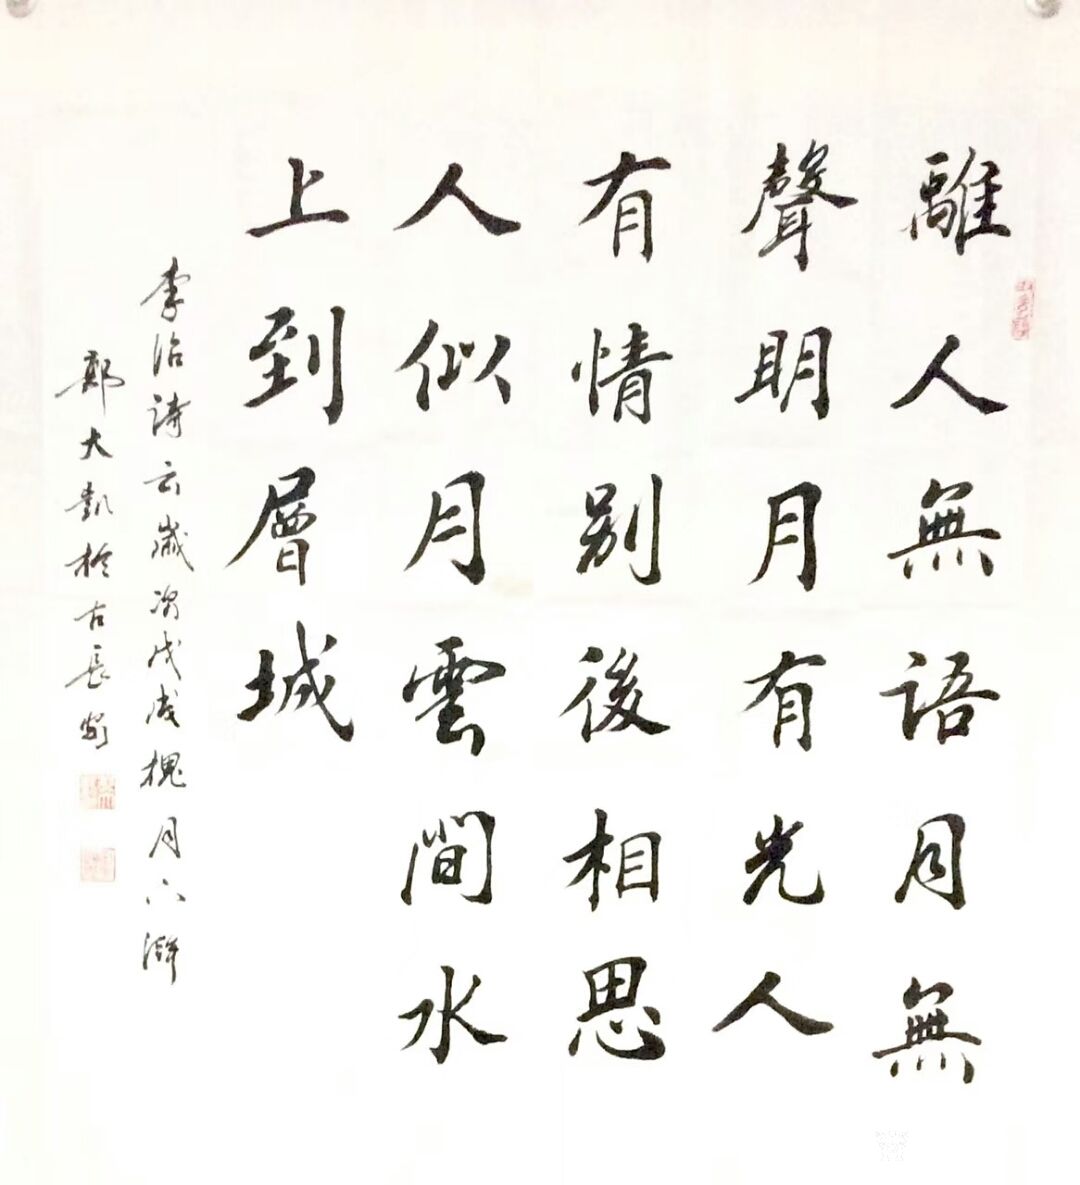 離人無語月無
聲明月有光人
有情别後相思
人似月雲間水
上到層城
李冶詩云歲次戊戌槐月六澣
鄭大凱於古長安